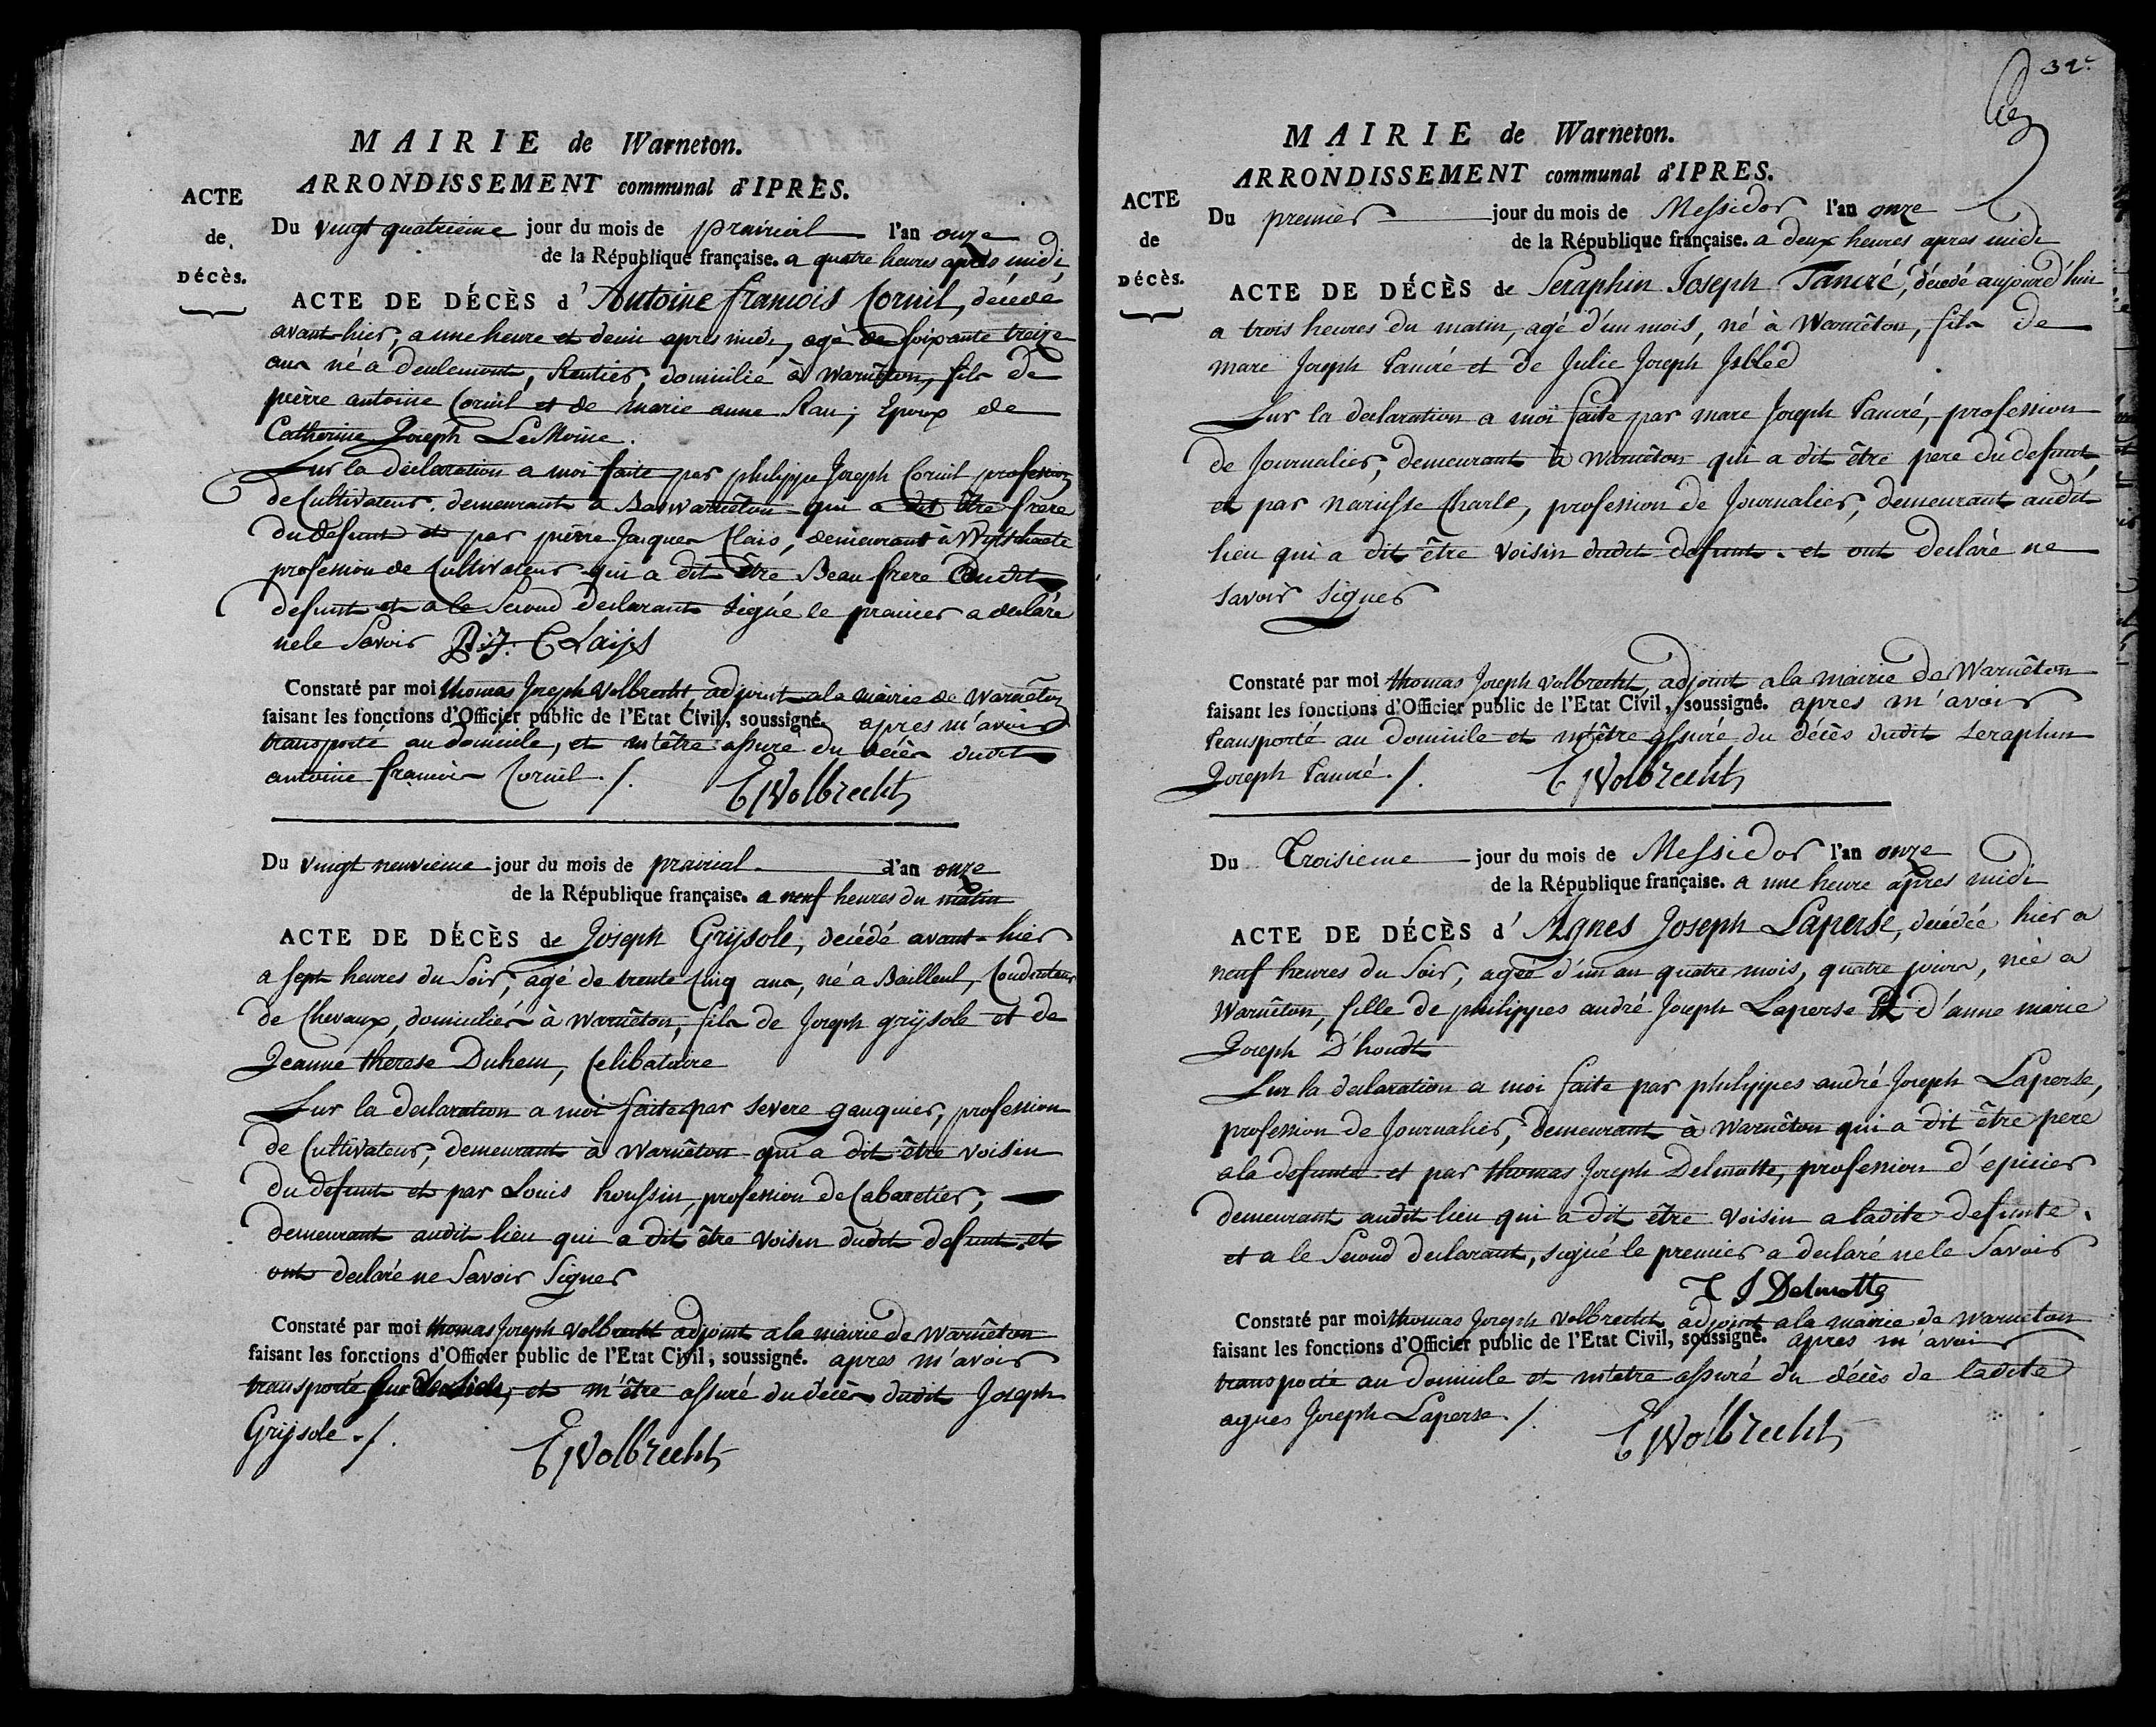 MAIRIE de Warneton.
ARRONDISSEMENT communal d'IPRES.
ACTE
de
DÉCÈS.
Du vingt quatrieme jour du mois de prairial l'an onze
de la République française. a quatre heures apres midi
ACTE DE DÉCÈS d'Antoine francois Cornil, décédé
avant-hier, a une heure et demi apres midi, agé de soixante treize
ans né à deulemont, Rentier, domicilié à Warnêton, fils de
pièrre antoine Cornil et de marie anne Rau; Epoux de
Catherine Joseph LeMoine.
Sur la déclaration a moi faite par philippe Joseph Cornil profession
de Cultivateur, demeurant a Baswarnêton qui a dit être frere
du defunt et par pièrre Jacques Clais, demeurant à Wytschaete
profession de Cultivateur qui a dit être Beau frere dudit
defunt et a le Second declarant signé le premier a declaré
ne le Savoir P: J: CLaijs
Constaté par moi thomas Joseph Volbrecht adjoint a la mairie de Warnêton
faisant les fonctions d'Officier public de l'Etat Civil, soussigné. apres m'avoir
transporté au domicile, et m'être assuré du décès dudit
antoine francois Cornil ./. TJVolbrecht
Du vingt neuvieme jour du mois de prairial d'an onze
de la République française. a neuf heures du matin
ACTE DE DÉCÈS de Joseph Grijsole, décédé avant-hier
a sept heures du Soir, agé de trente Cinq ans, né a Bailleul, Conducteur
de Chevaux, domicilié à Warnêton, fils de Joseph grijsole et de
Jeanne therese Duhem, Celibataire
Sur la declaration a moi faite par severe gauquier, profession
de Cultivateur, demeurant à Warnêton qui a dit être voisin
du defunt et par Louis houssin, profession de Cabaretier,
demeurant audit lieu qui a dit être voisin dudit defunt. et
ont declaré ne Savoir Signer
Constaté par moi thomas Joseph Volbrecht adjoint a la mairie de Warnêton
faisant les fonctions d'Officier public de l'Etat Civil, soussigné. apres m'avoir
transporté et m'être assuré du décès dudit Joseph
Grijsole ./. TJVolbrecht
32e
MAIRIE de Warneton.
ARRONDISSEMENT communal d'IPRES.
ACTE
de
DÉCÈS.
Du premier jour du mois de Messidor l'an onze
de la République française. a deux heures apres midi
ACTE DE DÉCÈS de Seraphin Joseph Tancré, décédé aujourd'hui
a trois heures du matin, agé d'un mois, né à Warnêton, fils de
marc Joseph Tancré et de Julie Joseph Isbled
Sur la declaration a moi faite par marc Joseph Tancré, profession
de Journalier, demeurant à Warnêton qui a dit être pere du defunt,
et par narcisse Charle, profession de Journalier, demeurant audit
lieu qui a dit être voisin dudit defunt. et ont declaré ne
savoir signer
Constaté par moi thomas Joseph Volbrecht, adjoint a la mairie de Warnêton
faisant les fonctions d'Officier public de l'Etat Civil, soussigné. apres m'avoir
transporté au domicile et m'être assuré du décès dudit seraphin
Joseph Tancré ./. TJVolbrecht
Du Troisieme jour du mois de Messidor l'an onze
de la République française. a une heure apres midi
ACTE DE DÉCÈS d'Agnes Joseph Laperse, décédée hier a
neuf heures du Soir, agée d'un an quatre mois, quatre jours, née a
Warnêton, fille de philippes andré Joseph Laperse et d'anne marie
Joseph D'houdt
Sur la declaration a moi faite par philippes andré Joseph Laperse,
profession de Journalier, demeurant à Warnêton qui a dit être pere
a la defunte et par thomas Joseph Delmotte, profession d'epicier
demeurant audit lieu qui a dit être voisin a ladite defunte.
et a le Second declarant, signé le premier a declaré ne le Savoir
T J Delmotte
Constaté par moi thomas Joseph Volbrecht adjoint a la mairie de Warneton
faisant les fonctions d'Officier public de l'Etat Civil, soussigné. apres m'avoir
transporté au domicile et m'etre assuré du décès de ladite
agnes Joseph Laperse ./. TJVolbrecht